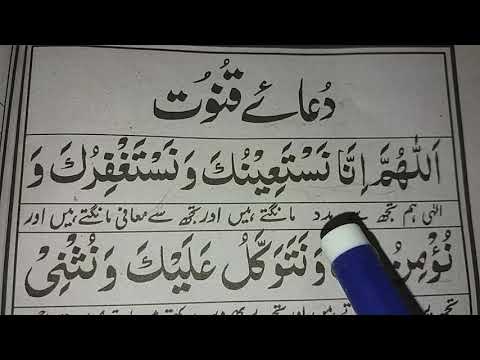 دُعائے قُنُوت
اَللّٰهُمَّ اِنَّا نَسْتَعِيْنُكَ وَنَسْتَغْفِرُكَ وَ
الٰہی ہم تجھ مدد مانگتے ہیں اور تجھ سے معافی مانگتے ہیں اور
وَنَتَوَكَّلُ عَلَيْكَ وَنُثْنِىْ